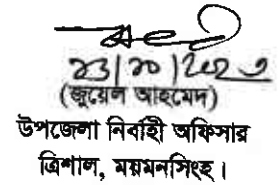 ২৩|১০|২০২৩
(জুয়েল আহমেদ)
উপজেলা নির্বাহী অফিসার
ত্রিশাল, ময়মনসিংহ।